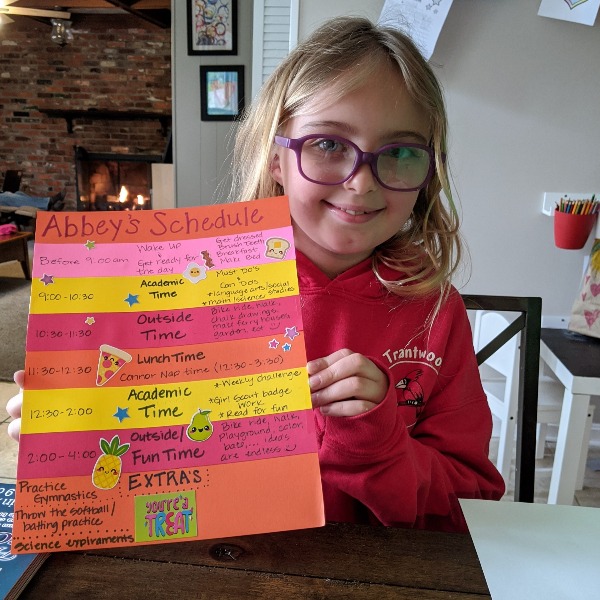 Abbey's Schedule
Before 9:00am
Wake Up
+
Get ready for
the day
Get dressed
Brush Teeth
Breakfast
Make Bed
9:00-10:30
Academic
Time
Must Do's
+
Can Do's
*language arts/social
studies
*math/science
10:30-11:30
Outside
Time
Bike ride, walk,
chalk drawings,
make ferry houses,
garden, eat
11:30-12:30
Lunch Time
Connor Nap time (12:30-3:30)
12:30-2:00
Academic
Time
*Weekly challenge
*Girl Scout badge
work
*Read for fun
2:00-4:00
Outside/
Fun Time
Bike ride, walk,
playground, color,
ideas
are endless
EXTRA'S
Practice
Gymnastics
Throw the softball/
batting practice
Science expiraments
you're a
TREAT
Trantwoo